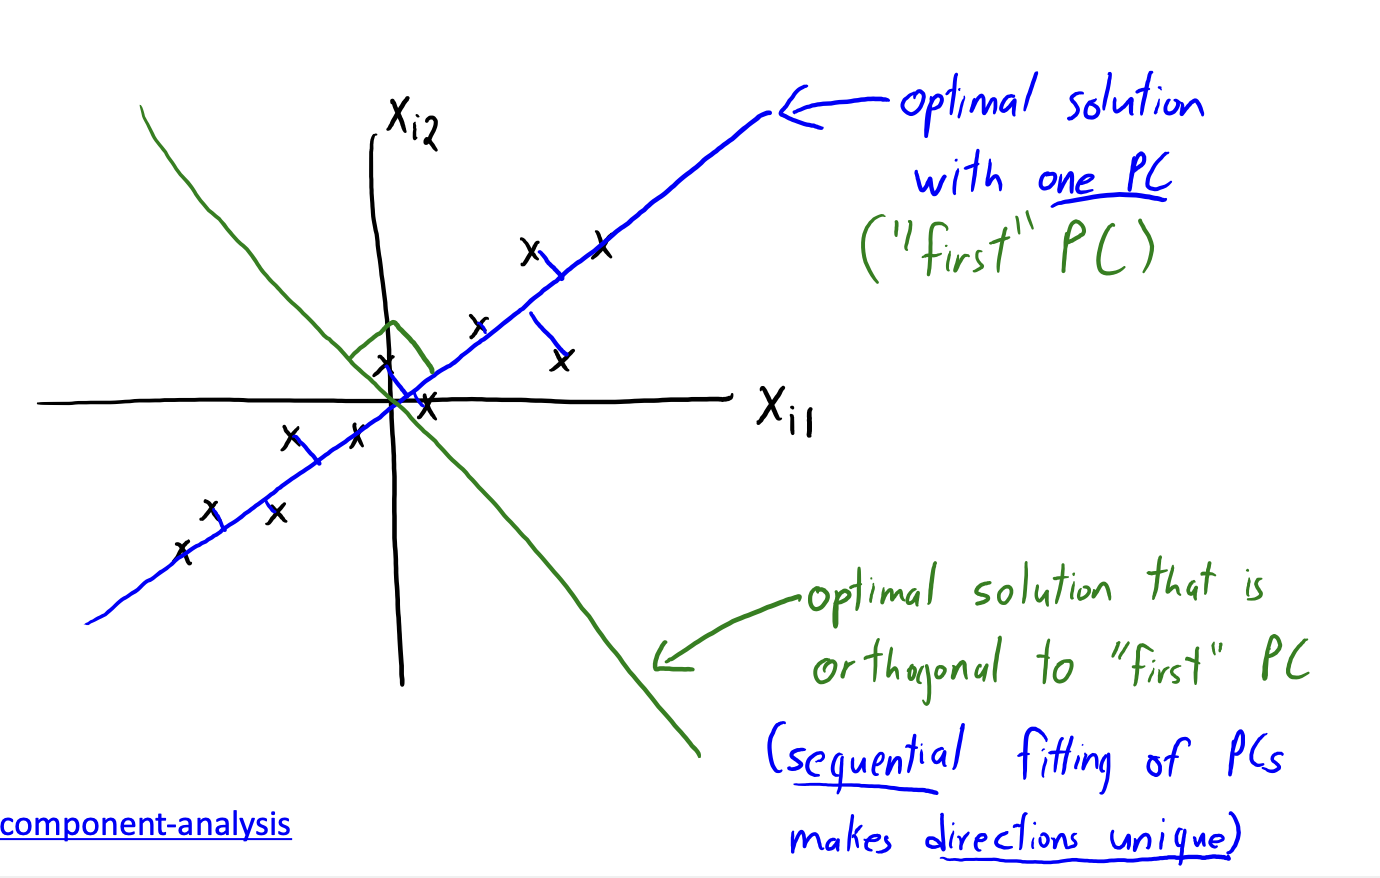 Xi2
optimal solution
with one PC
("first" PC)
Xi1
optimal solution that is
orthogonal to "first" PC
(sequential fitting of PCs
makes directions unique)
component-analysis